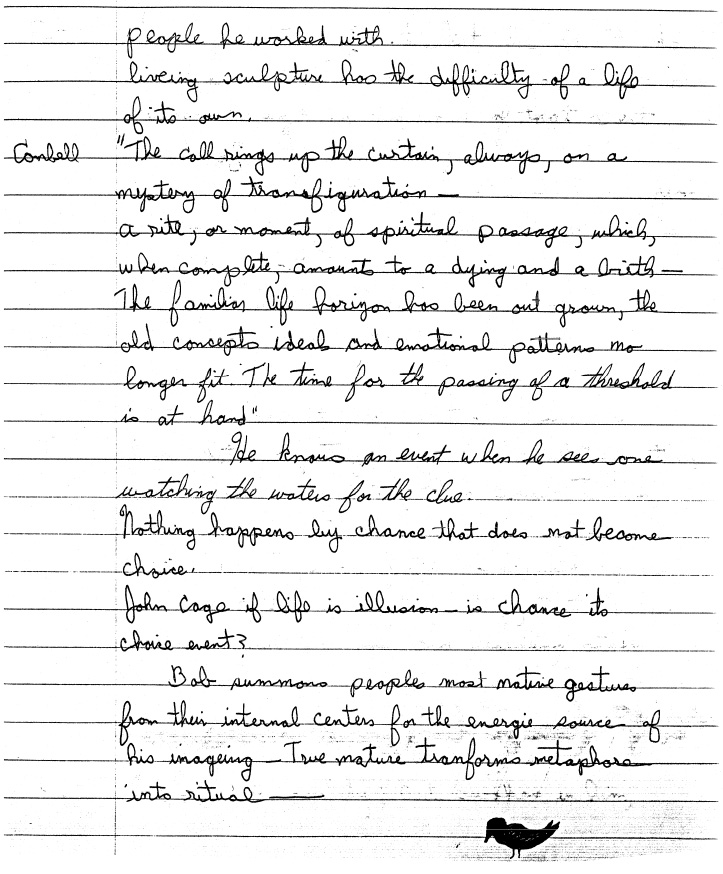 people he worked with.
liveing sculpture has the difficulty of a life
of its own.
Cambell "The call rings up the curtain, always, on a
mystery of transfiguration —
a rite, or moment, of spiritual passage, which,
when complete, amounts to a dying and a birth —
The familiar life horizon has been out grown, the
old concepts ideals and emotional patterns no
longer fit. The time for the passing of a threshold
is at hand"
He knows an event when he sees one
watching the waters for the clue.
Nothing happens by chance that does not become
choice.
John Cage if life is illusion — is chance its
choice event?
Bob summons peoples most native gestures
from their internal centers for the energie source of
his imageing — True nature tranforms metaphors
into ritual —